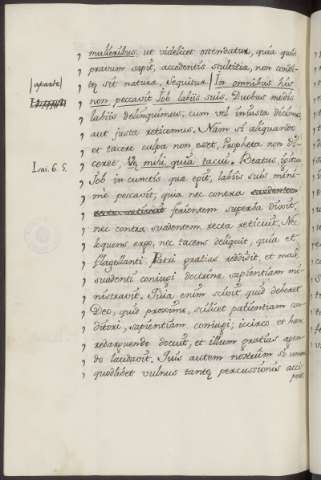 mulieribus, ut videlicet ostendatur, quia quòd
pravum sapit, accedentis stultitia, non condi-
tę sit natura. Sequitur: In omnibus his
non peccavit Job labiis suis. Duobus modis
labiis delinquimus, cum vel iniusta dicimus,
aut justa reticemus. Nam si aliquando
et tacere culpa non esset, Propheta non di-
Isai. 6. 5. ceret, Vę mihi, quia tacui. Beatus igitur
Job in cunctis quę egit, labiis suis mini-
mè peccavit, quia nec contra
ferientem superba dixit,
nec contra suadentem recta reticuit. Ne-
loquens ergo, nec tacens deliquit, quia et
flagellanti Patri gratias reddidit, et malè
suadenti coniugi doctrinę sapientiam mi-
nistravit. Quia enim scivit quid deberet
Deo, quid proximo, scilicet patientiam con-
ditori, sapientiam coniugi; iccirco et hanc
redarguendo docuit, et illum gratias agen-
do laudavit. Quis autem nostrûm si
quodlibet vulnus tantę percussionis acci